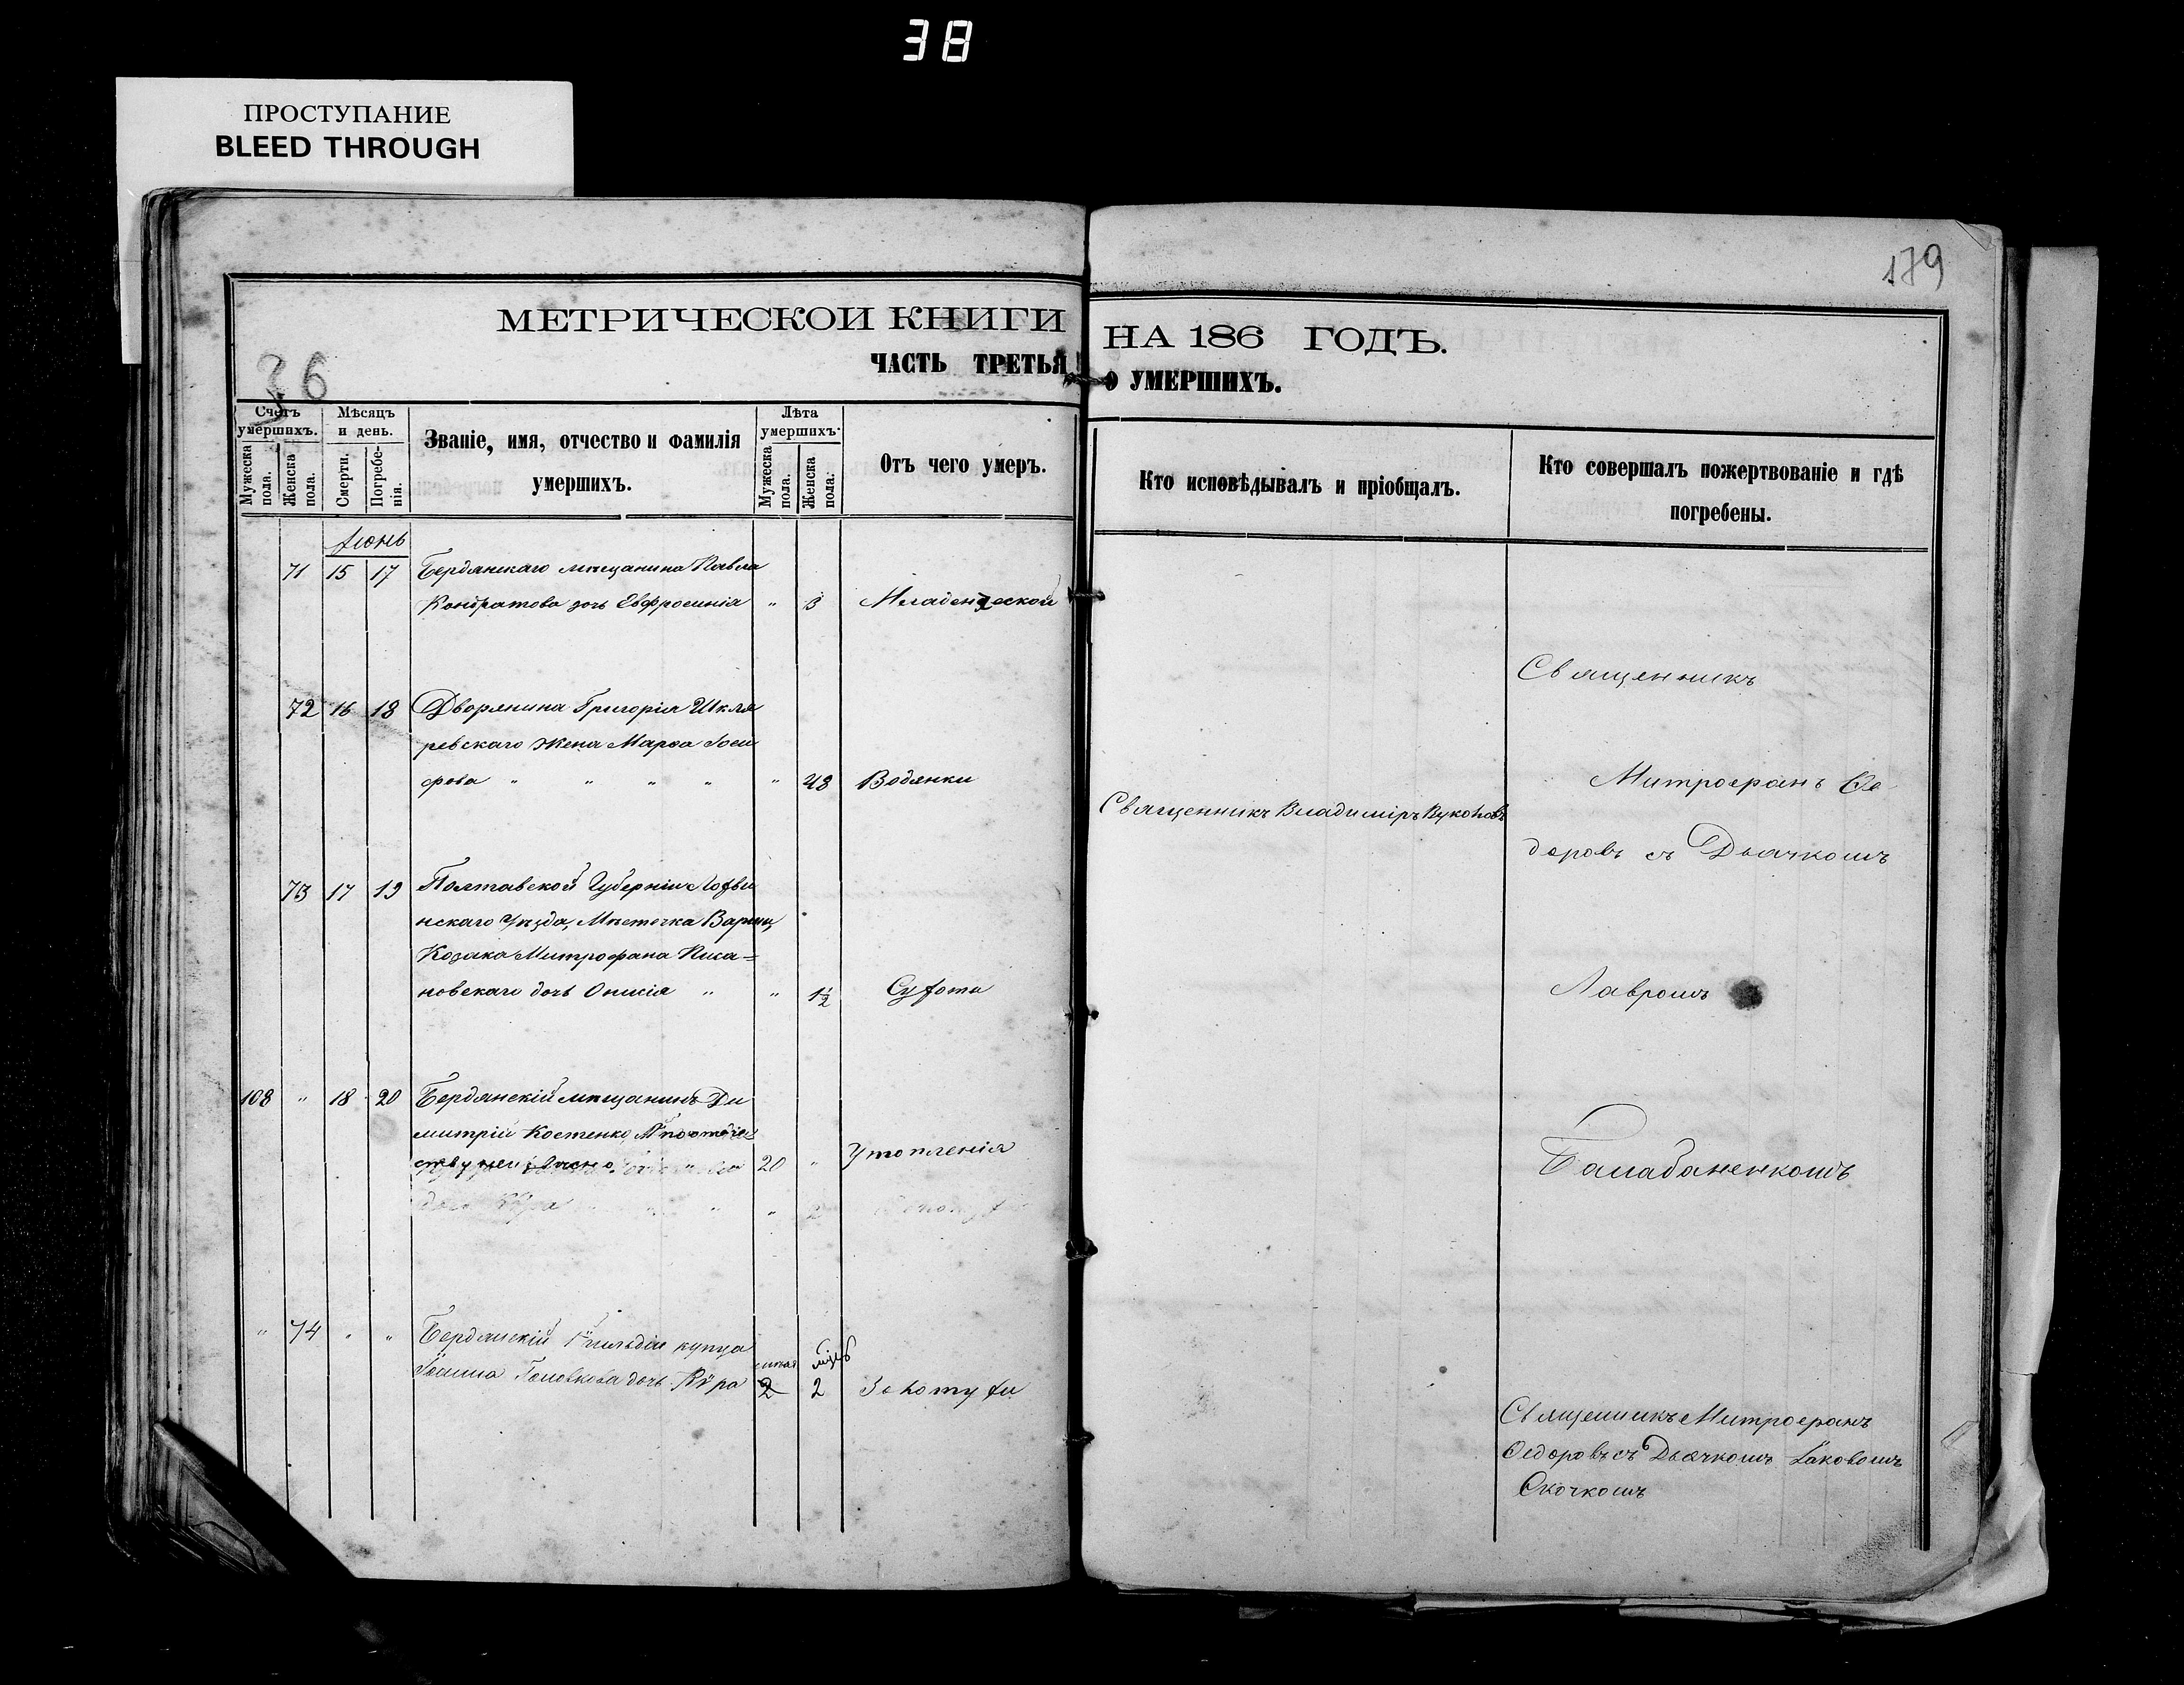 38
ПРОСТУПАНИЕ
BLEED THROUGH
179
МЕТРИЧЕСКОЙ КНИГИ НА 186 ГОДЪ.
ЧАСТЬ ТРЕТЬЯ О УМЕРШИХЪ.
36
Счетъ умершихъ.
Мужеска пола.
Женска пола.
Мѣсяцъ и день.
Смерти.
Погребенія.
Званіе, имя, отчество и фамилія умершихъ.
Лѣта умершихъ.
Мужеска пола.
Женска пола.
Отъ чего умеръ.
Кто исповѣдывалъ и пріобщалъ.
Кто совершалъ пожертвованіе и гдѣ погребены.
Іюнь
71 15 17 Бердянскаго мѣщанина Павла
Кондратова дочь Евфросинія " 3 Младенческой
Священникъ
72 16 18 Дворянина Григорія Шкля
ревскаго жена Марѳа Іоси
фова " " " " " 48 Водянки
Митрофанъ Ѳе
Священникъ Владиміръ
доровъ съ Дьячкомъ
73 17 19 Полтавской Губерніи Лохви
нскаго Уѣзда, Мѣстечка Варвы
Козака Митрофана Писа=
новскаго дочь Онисія " " 1½ Сухоты
Лавромъ
108 " 18 20 Бердянскій мѣщанинъ Ди
митрій Костенко, по отече
ству неизвѣстно 20 " Утопленія
Балабаненкомъ
" 74 " " Бердянскій 1й гильдіи купца
Іоанна Головкова дочь Кѵра 2 2 Золотухи
Священникъ Митрофанъ
Ѳедоровъ съ Дьячкомъ Іаковомъ
Скочкомъ